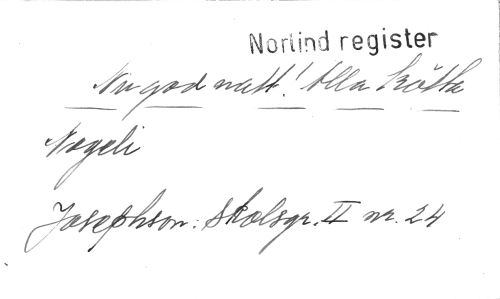 Norlind register
Nu god natt! Alla trötta
Nägeli
Josephson: Skolsgr. II nr. 24